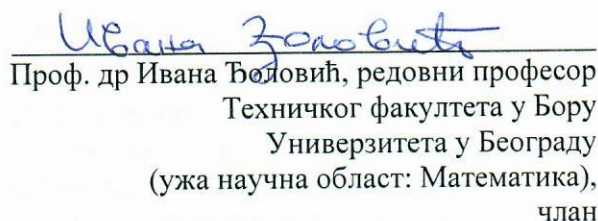 Ивана Ђоловић
Проф. др Ивана Ђоловић, редовни професор
Техничког факултета у Бору
Универзитета у Београду
(ужа научна област: Математика),
члан